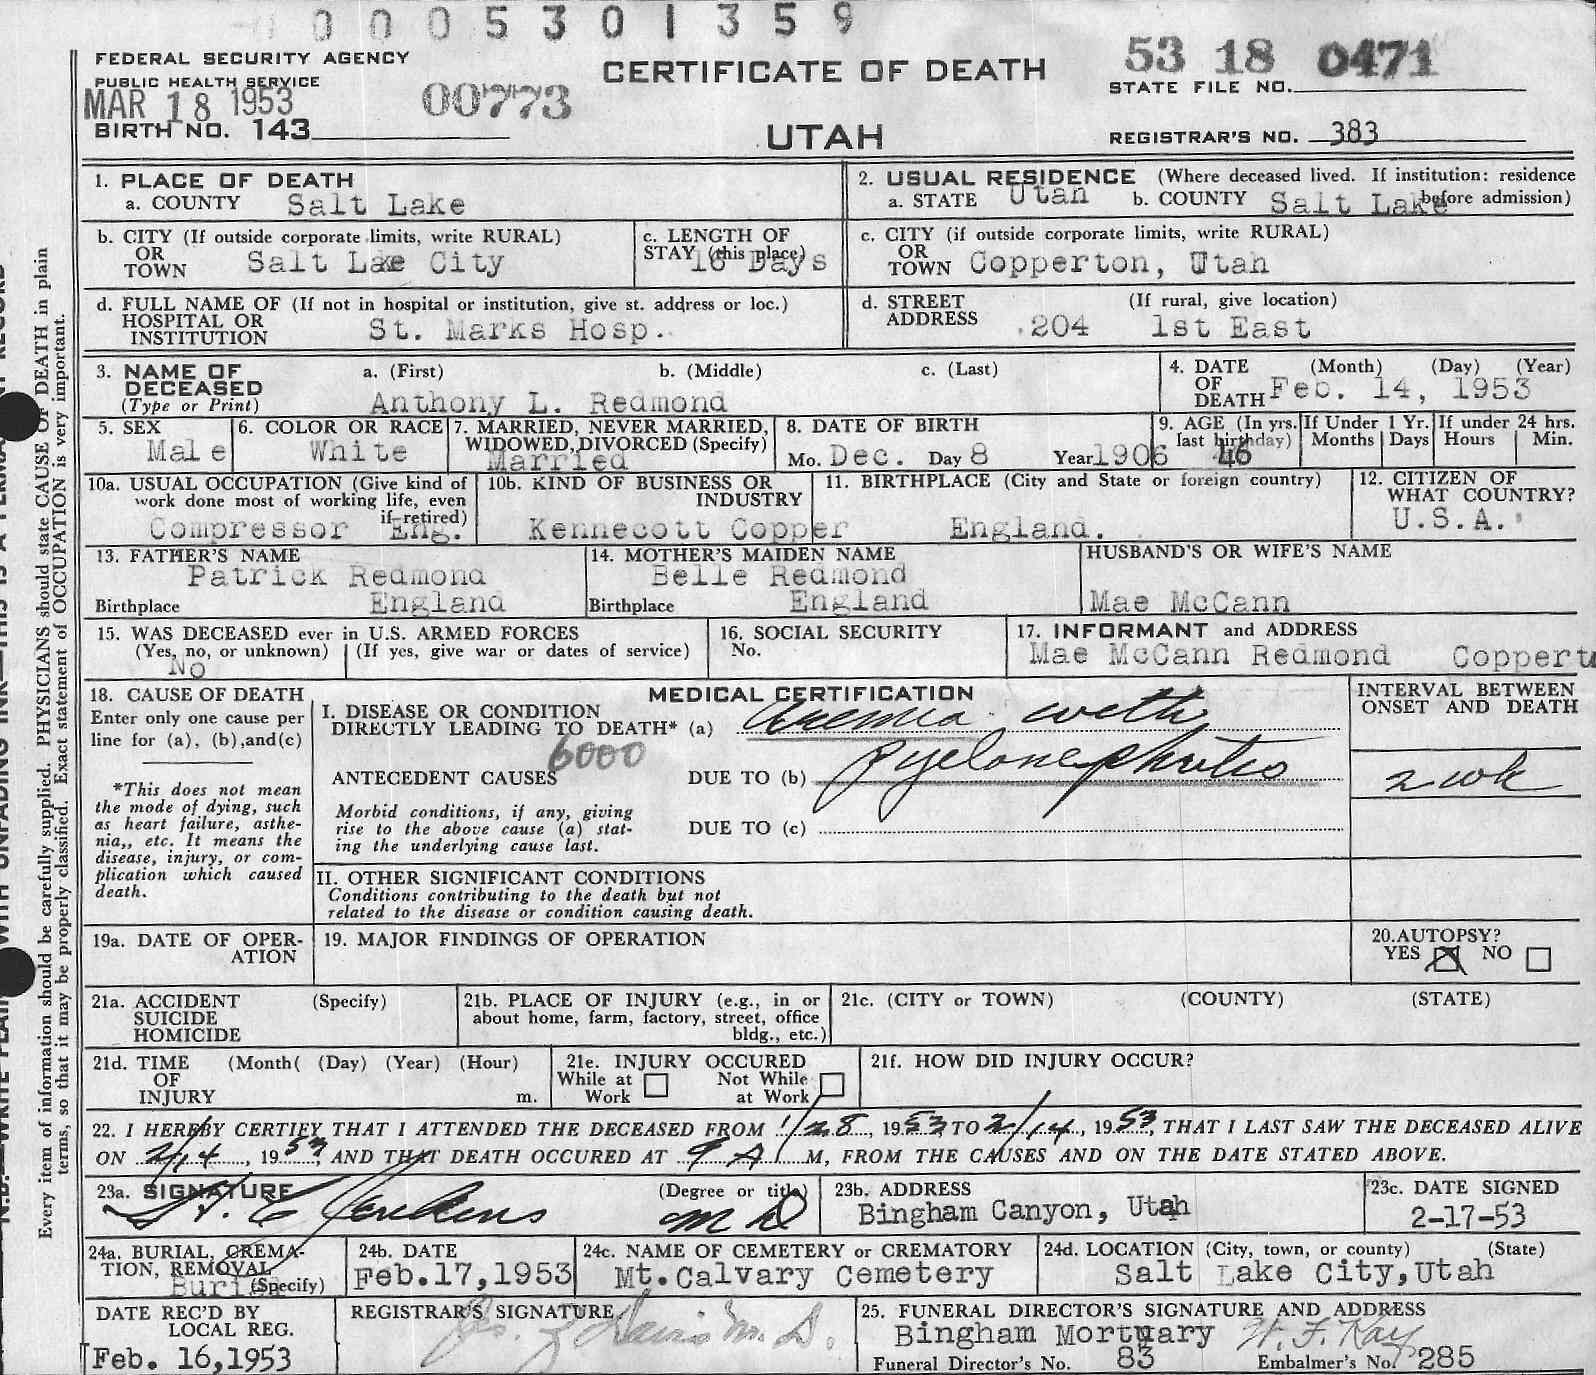 0005301359
FEDERAL SECURITY AGENCY
PUBLIC HEALTH SERVICE
MAR 18 1953
BIRTH NO. 143
00773
CERTIFICATE OF DEATH
UTAH
53 18 0471
STATE FILE NO.
REGISTRAR'S NO. 383
1. PLACE OF DEATH
a. COUNTY Salt Lake
2. USUAL RESIDENCE (Where deceased lived. If institution: residence before admission)
a. STATE Utah b. COUNTY Salt Lake
b. CITY (If outside corporate limits, write RURAL)
OR
TOWN Salt Lake City
c. LENGTH OF
STAY (this place)
16 Days
c. CITY (if outside corporate limits, write RURAL)
OR
TOWN Copperton, Utah
d. FULL NAME OF (If not in hospital or institution, give st. address or loc.)
HOSPITAL OR
INSTITUTION St. Marks Hosp.
d. STREET (If rural, give location)
ADDRESS 204 1st East
3. NAME OF a. (First) b. (Middle) c. (Last)
DECEASED
(Type or Print) Anthony L. Redmond
4. DATE (Month) (Day) (Year)
OF
DEATH Feb. 14, 1953
5. SEX
Male
6. COLOR OR RACE
White
7. MARRIED, NEVER MARRIED,
WIDOWED, DIVORCED (Specify)
Married
8. DATE OF BIRTH
Mo. Dec. Day 8 Year 1906
9. AGE (In yrs. last birthday)
46
If Under 1 Yr.
Months Days
If under 24 hrs.
Hours Min.
10a. USUAL OCCUPATION (Give kind of
work done most of working life, even
if retired)
Compressor Eng.
10b. KIND OF BUSINESS OR
INDUSTRY
Kennecott Copper
11. BIRTHPLACE (City and State or foreign country)
England.
12. CITIZEN OF
WHAT COUNTRY?
U.S.A.
13. FATHER'S NAME
Patrick Redmond
Birthplace England
14. MOTHER'S MAIDEN NAME
Belle Redmond
Birthplace England
HUSBAND'S OR WIFE'S NAME
Mae McCann
15. WAS DECEASED ever in U.S. ARMED FORCES
(Yes, no, or unknown) (If yes, give war or dates of service)
No
16. SOCIAL SECURITY
No.
17. INFORMANT and ADDRESS
Mae McCann Redmond Coppert
18. CAUSE OF DEATH
Enter only one cause per
line for (a), (b), and (c)
*This does not mean
the mode of dying, such
as heart failure, asthe-
nia,, etc. It means the
disease, injury, or com-
plication which caused
death.
MEDICAL CERTIFICATION
I. DISEASE OR CONDITION
DIRECTLY LEADING TO DEATH* (a) Uremia with
6000
ANTECEDENT CAUSES DUE TO (b) pyelonephritis
Morbid conditions, if any, giving
rise to the above cause (a) stat-
ing the underlying cause last.
DUE TO (c)
INTERVAL BETWEEN
ONSET AND DEATH
2 wk
II. OTHER SIGNIFICANT CONDITIONS
Conditions contributing to the death but not
related to the disease or condition causing death.
19a. DATE OF OPER-
ATION
19. MAJOR FINDINGS OF OPERATION
20. AUTOPSY?
YES X NO
21a. ACCIDENT (Specify)
SUICIDE
HOMICIDE
21b. PLACE OF INJURY (e.g., in or
about home, farm, factory, street, office
bldg., etc.)
21c. (CITY or TOWN) (COUNTY) (STATE)
21d. TIME (Month( (Day) (Year) (Hour)
OF
INJURY m.
21e. INJURY OCCURED
While at Work Not While at Work
21f. HOW DID INJURY OCCUR?
22. I HEREBY CERTIFY THAT I ATTENDED THE DECEASED FROM 1/28, 1953 TO 2/14, 1953, THAT I LAST SAW THE DECEASED ALIVE
ON 2/14, 1953, AND THAT DEATH OCCURED AT 9 A M, FROM THE CAUSES AND ON THE DATE STATED ABOVE.
23a. SIGNATURE (Degree or title)
Jenkins M D
23b. ADDRESS
Bingham Canyon, Utah
23c. DATE SIGNED
2-17-53
24a. BURIAL, CREMA-
TION, REMOVAL
(Specify)
Burial
24b. DATE
Feb.17,1953
24c. NAME OF CEMETERY or CREMATORY
Mt.Calvary Cemetery
24d. LOCATION (City, town, or county) (State)
Salt Lake City,Utah
DATE REC'D BY
LOCAL REG.
Feb. 16,1953
REGISTRAR'S SIGNATURE
M. D.
25. FUNERAL DIRECTOR'S SIGNATURE AND ADDRESS
Bingham Mortuary W. F. Kay
Funeral Director's No. 83 Embalmer's No. 285
Every item of information should be carefully supplied. PHYSICIANS should state CAUSE OF DEATH in plain
terms, so that it may be properly classified. Exact statement of OCCUPATION is very important.